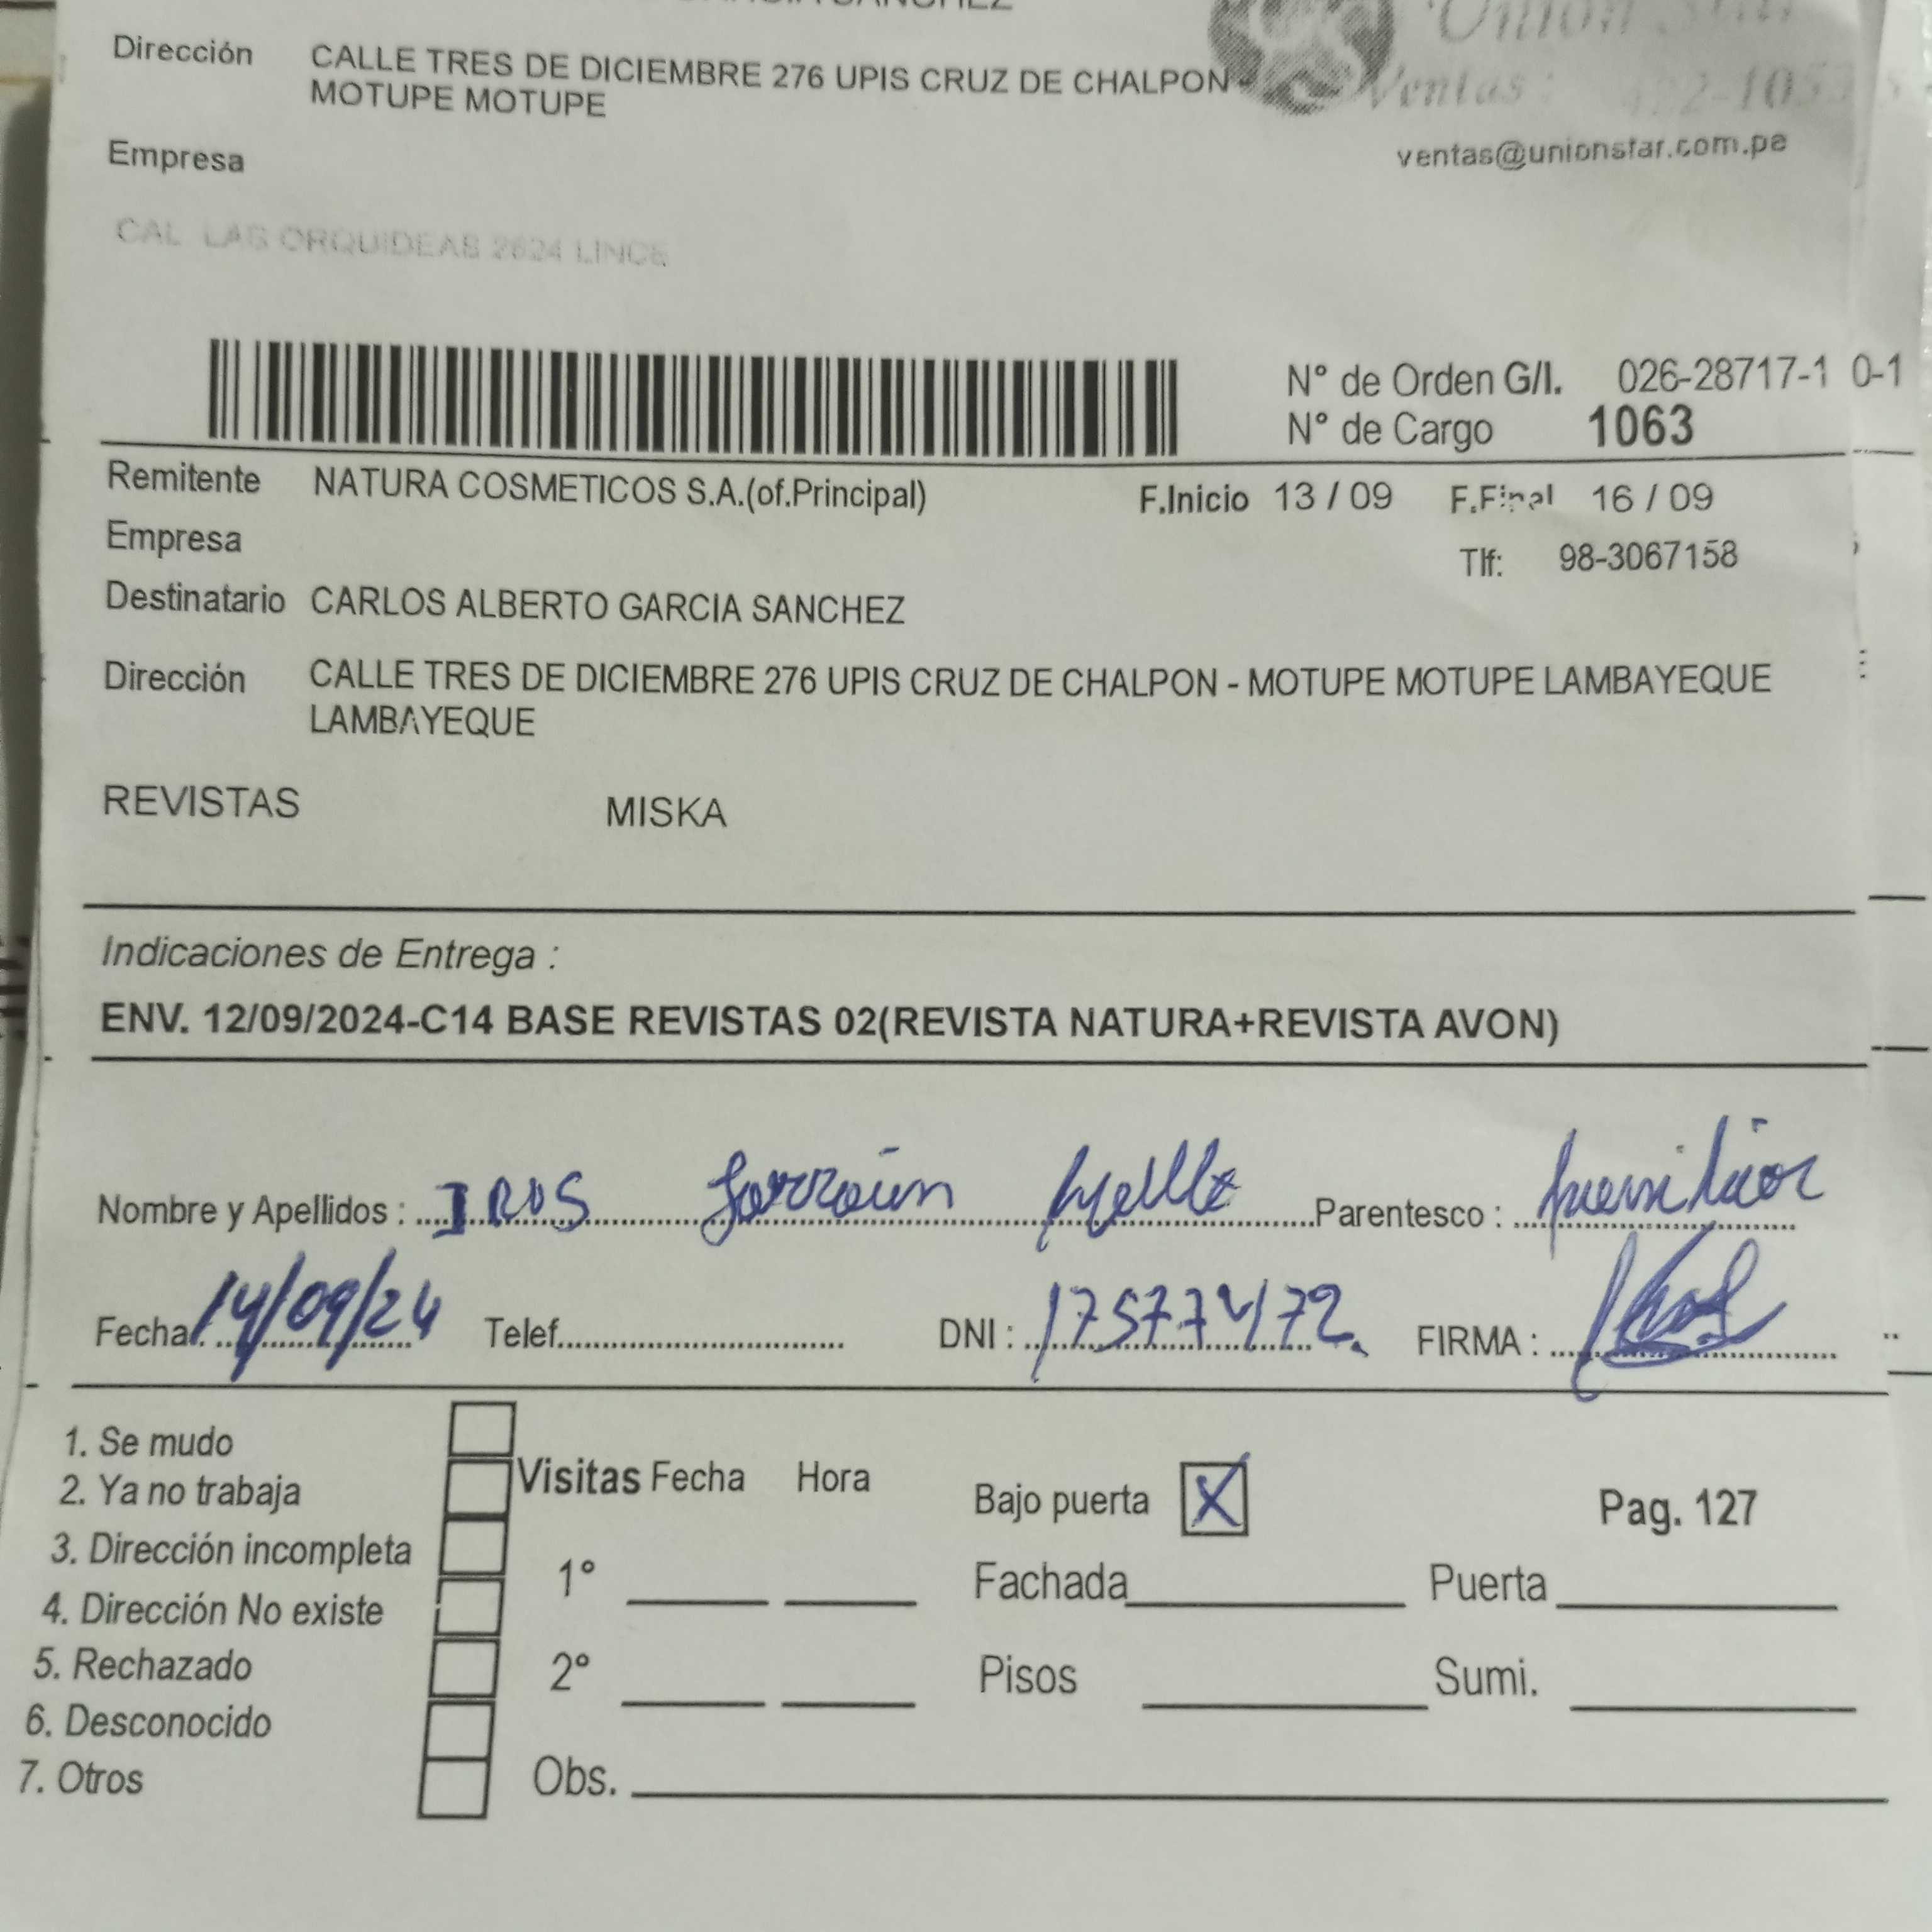 Dirección CALLE TRES DE DICIEMBRE 276 UPIS CRUZ DE CHALPON -
MOTUPE MOTUPE
Union Star
Ventas :
ventas@unionstar.com.pe
Empresa
CAL LAS ORQUIDEAS 2624 LINCE
N° de Orden G/I. 026-28717-1 0-1
N° de Cargo 1063
Remitente NATURA COSMETICOS S.A.(of.Principal) F.Inicio 13 / 09 F.Final 16 / 09
Empresa Tlf: 98-3067158
Destinatario CARLOS ALBERTO GARCIA SANCHEZ
Dirección CALLE TRES DE DICIEMBRE 276 UPIS CRUZ DE CHALPON - MOTUPE MOTUPE LAMBAYEQUE
LAMBAYEQUE
REVISTAS MISKA
Indicaciones de Entrega :
ENV. 12/09/2024-C14 BASE REVISTAS 02(REVISTA NATURA+REVISTA AVON)
Nombre y Apellidos : Parentesco :
Fecha: 14/09/24 Telef. DNI : FIRMA :
1. Se mudo
2. Ya no trabaja
3. Dirección incompleta
4. Dirección No existe
5. Rechazado
6. Desconocido
7. Otros
Visitas Fecha Hora
1°
2°
Obs.
Bajo puerta X Pag. 127
Fachada Puerta
Pisos Sumi.